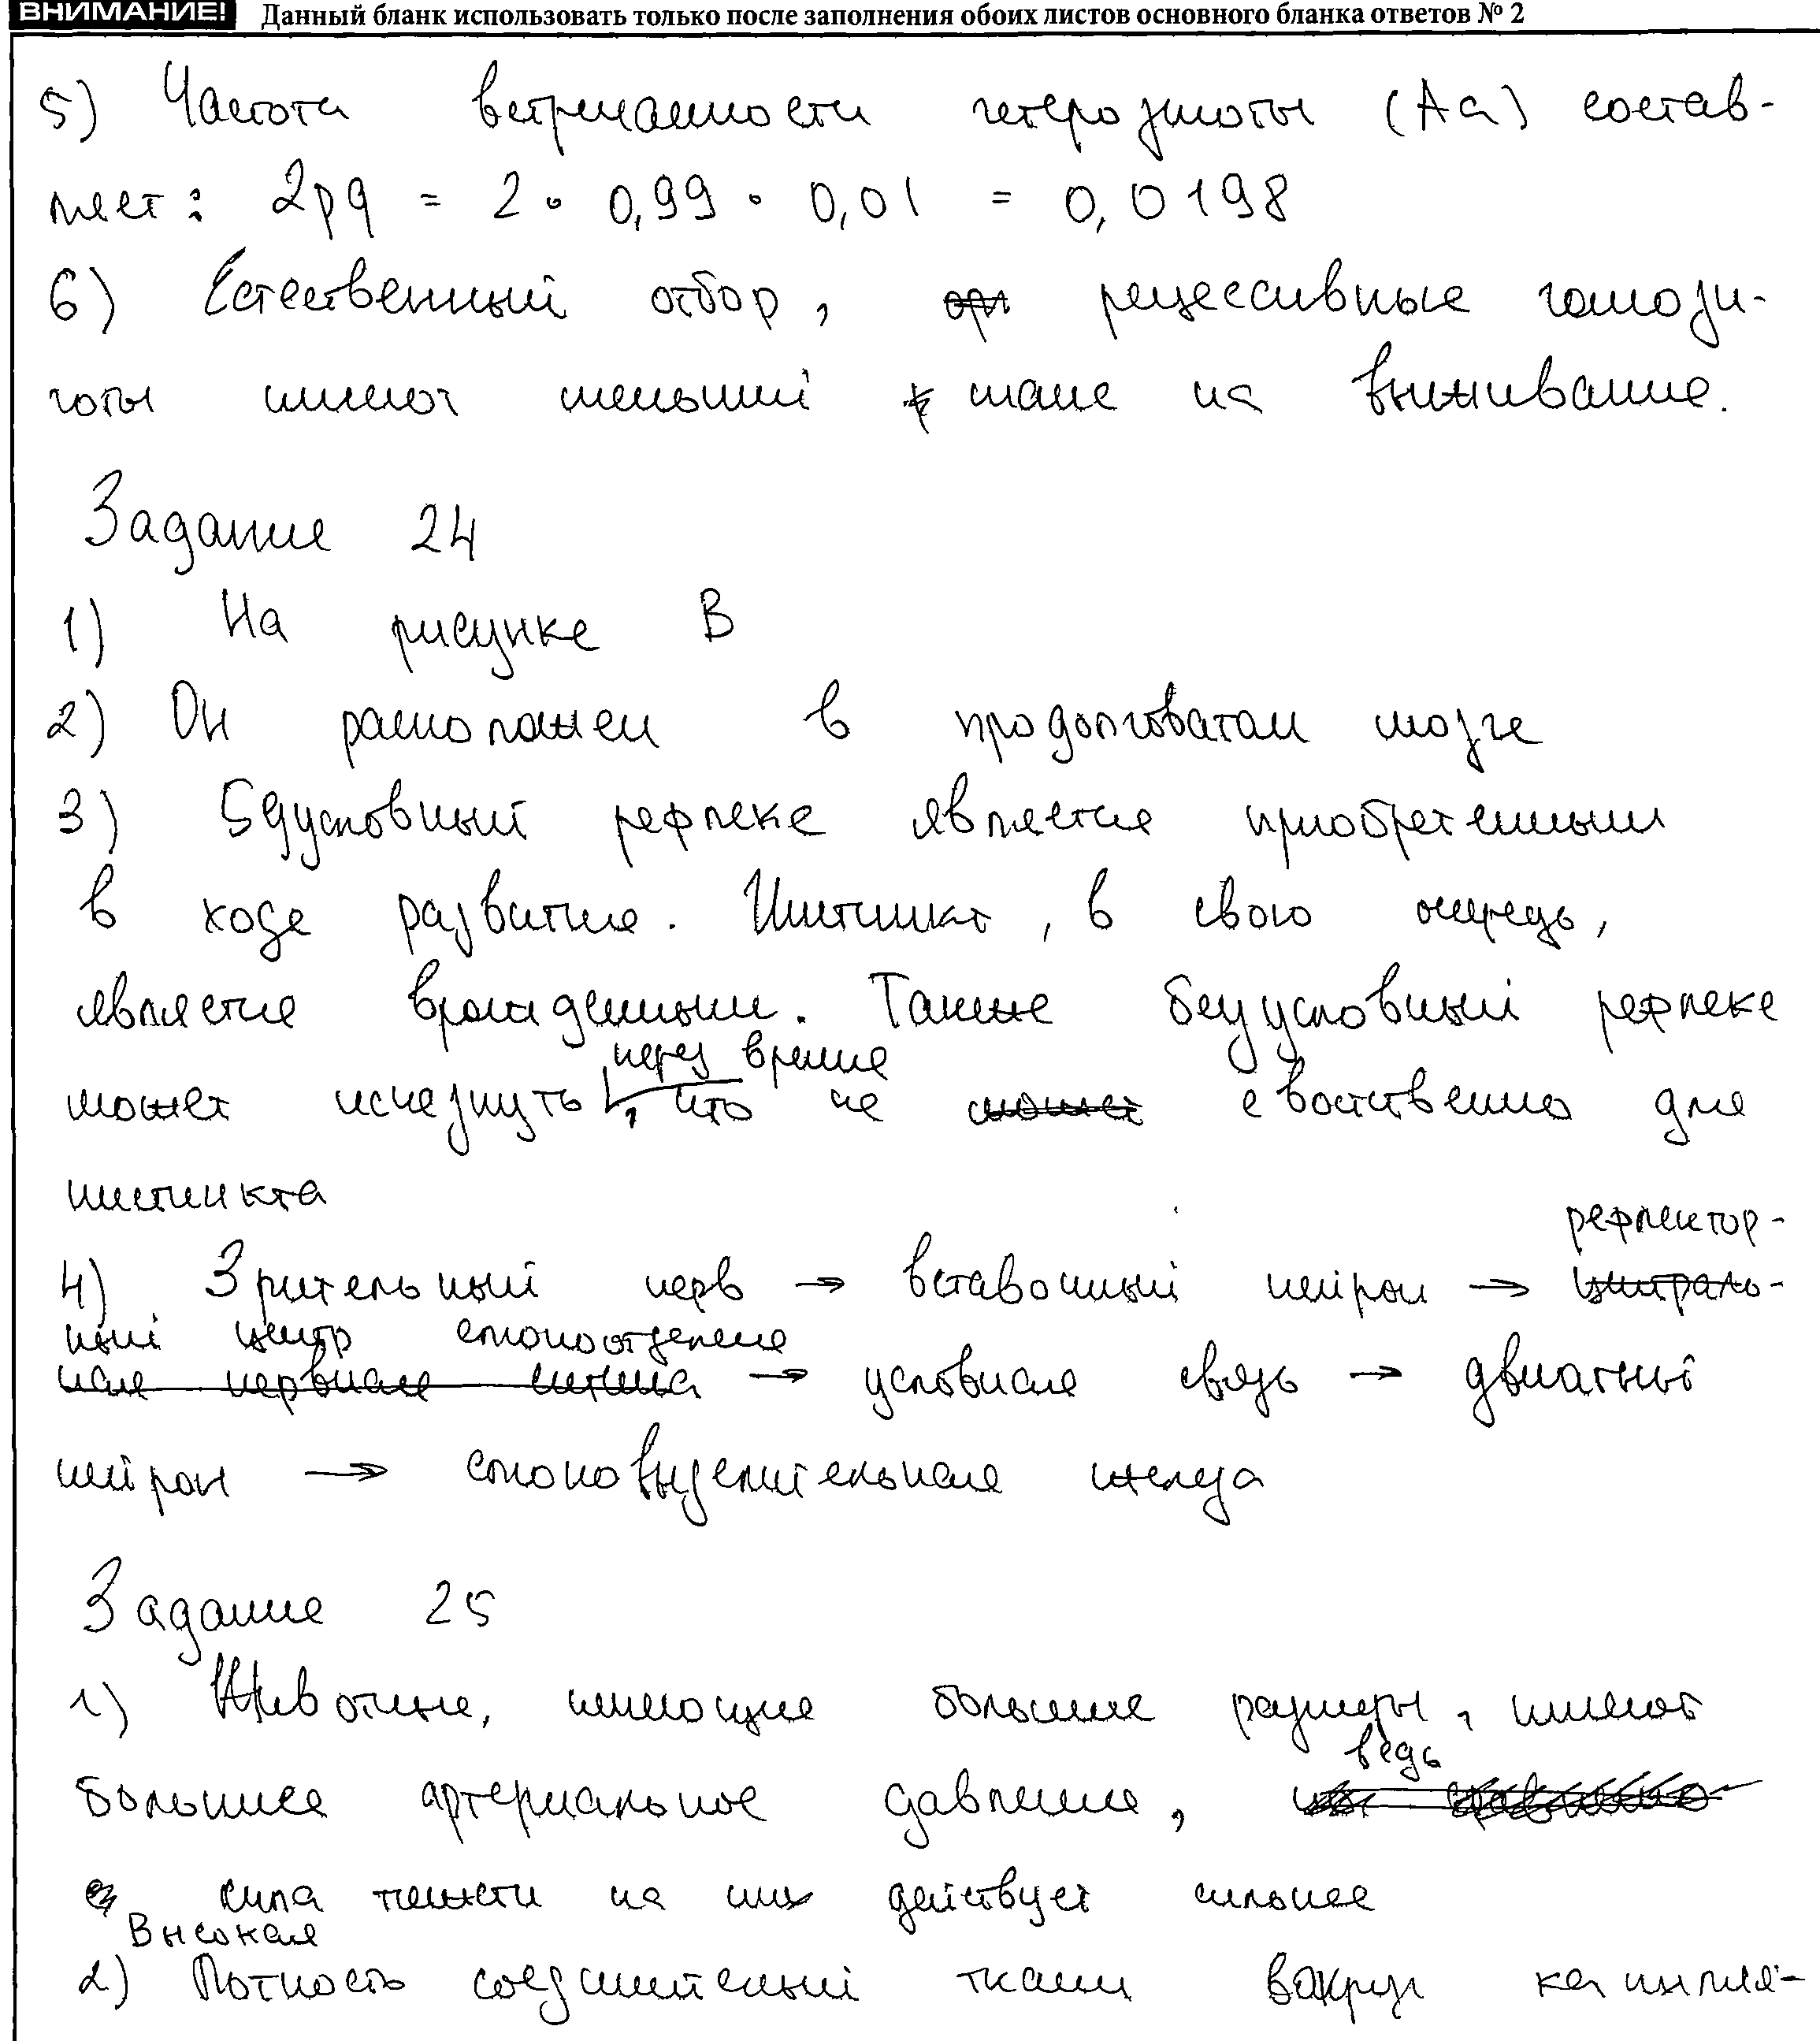 ВНИМАНИЕ! Данный бланк использовать только после заполнения обоих листов основного бланка ответов № 2
5) Частота встречаемости гетерозиготы (Aa) состав-
ляет: 2pq = 2 · 0,99 · 0,01 = 0,0198
6) Естественный отбор, рецессивные гомози-
готы имеют меньший шанс на выживание.
Задание 24
1) На рисунке В
2) Он расположен в продолговатом мозге
3) Бдусловный рефлекс является приобретенным
в ходе развития. Инстинкт, в свою очередь,
является врожденным. Также безусловный рефлекс
может исчезнуть через время, что не свойственно для
инстинкта
4) Зрительный нерв → вставочный нейрон → рефлектор-
ный центр слюноотделения → условная связь → двигатный
нейрон → слюновыделительная железа
Задание 25
1) Животные, имеющие большие размеры, имеют
большее артериальное давление, ведь
сила тяжести на них действует сильнее
2) Высокая Плотность соединительной ткани вокруг капилля-